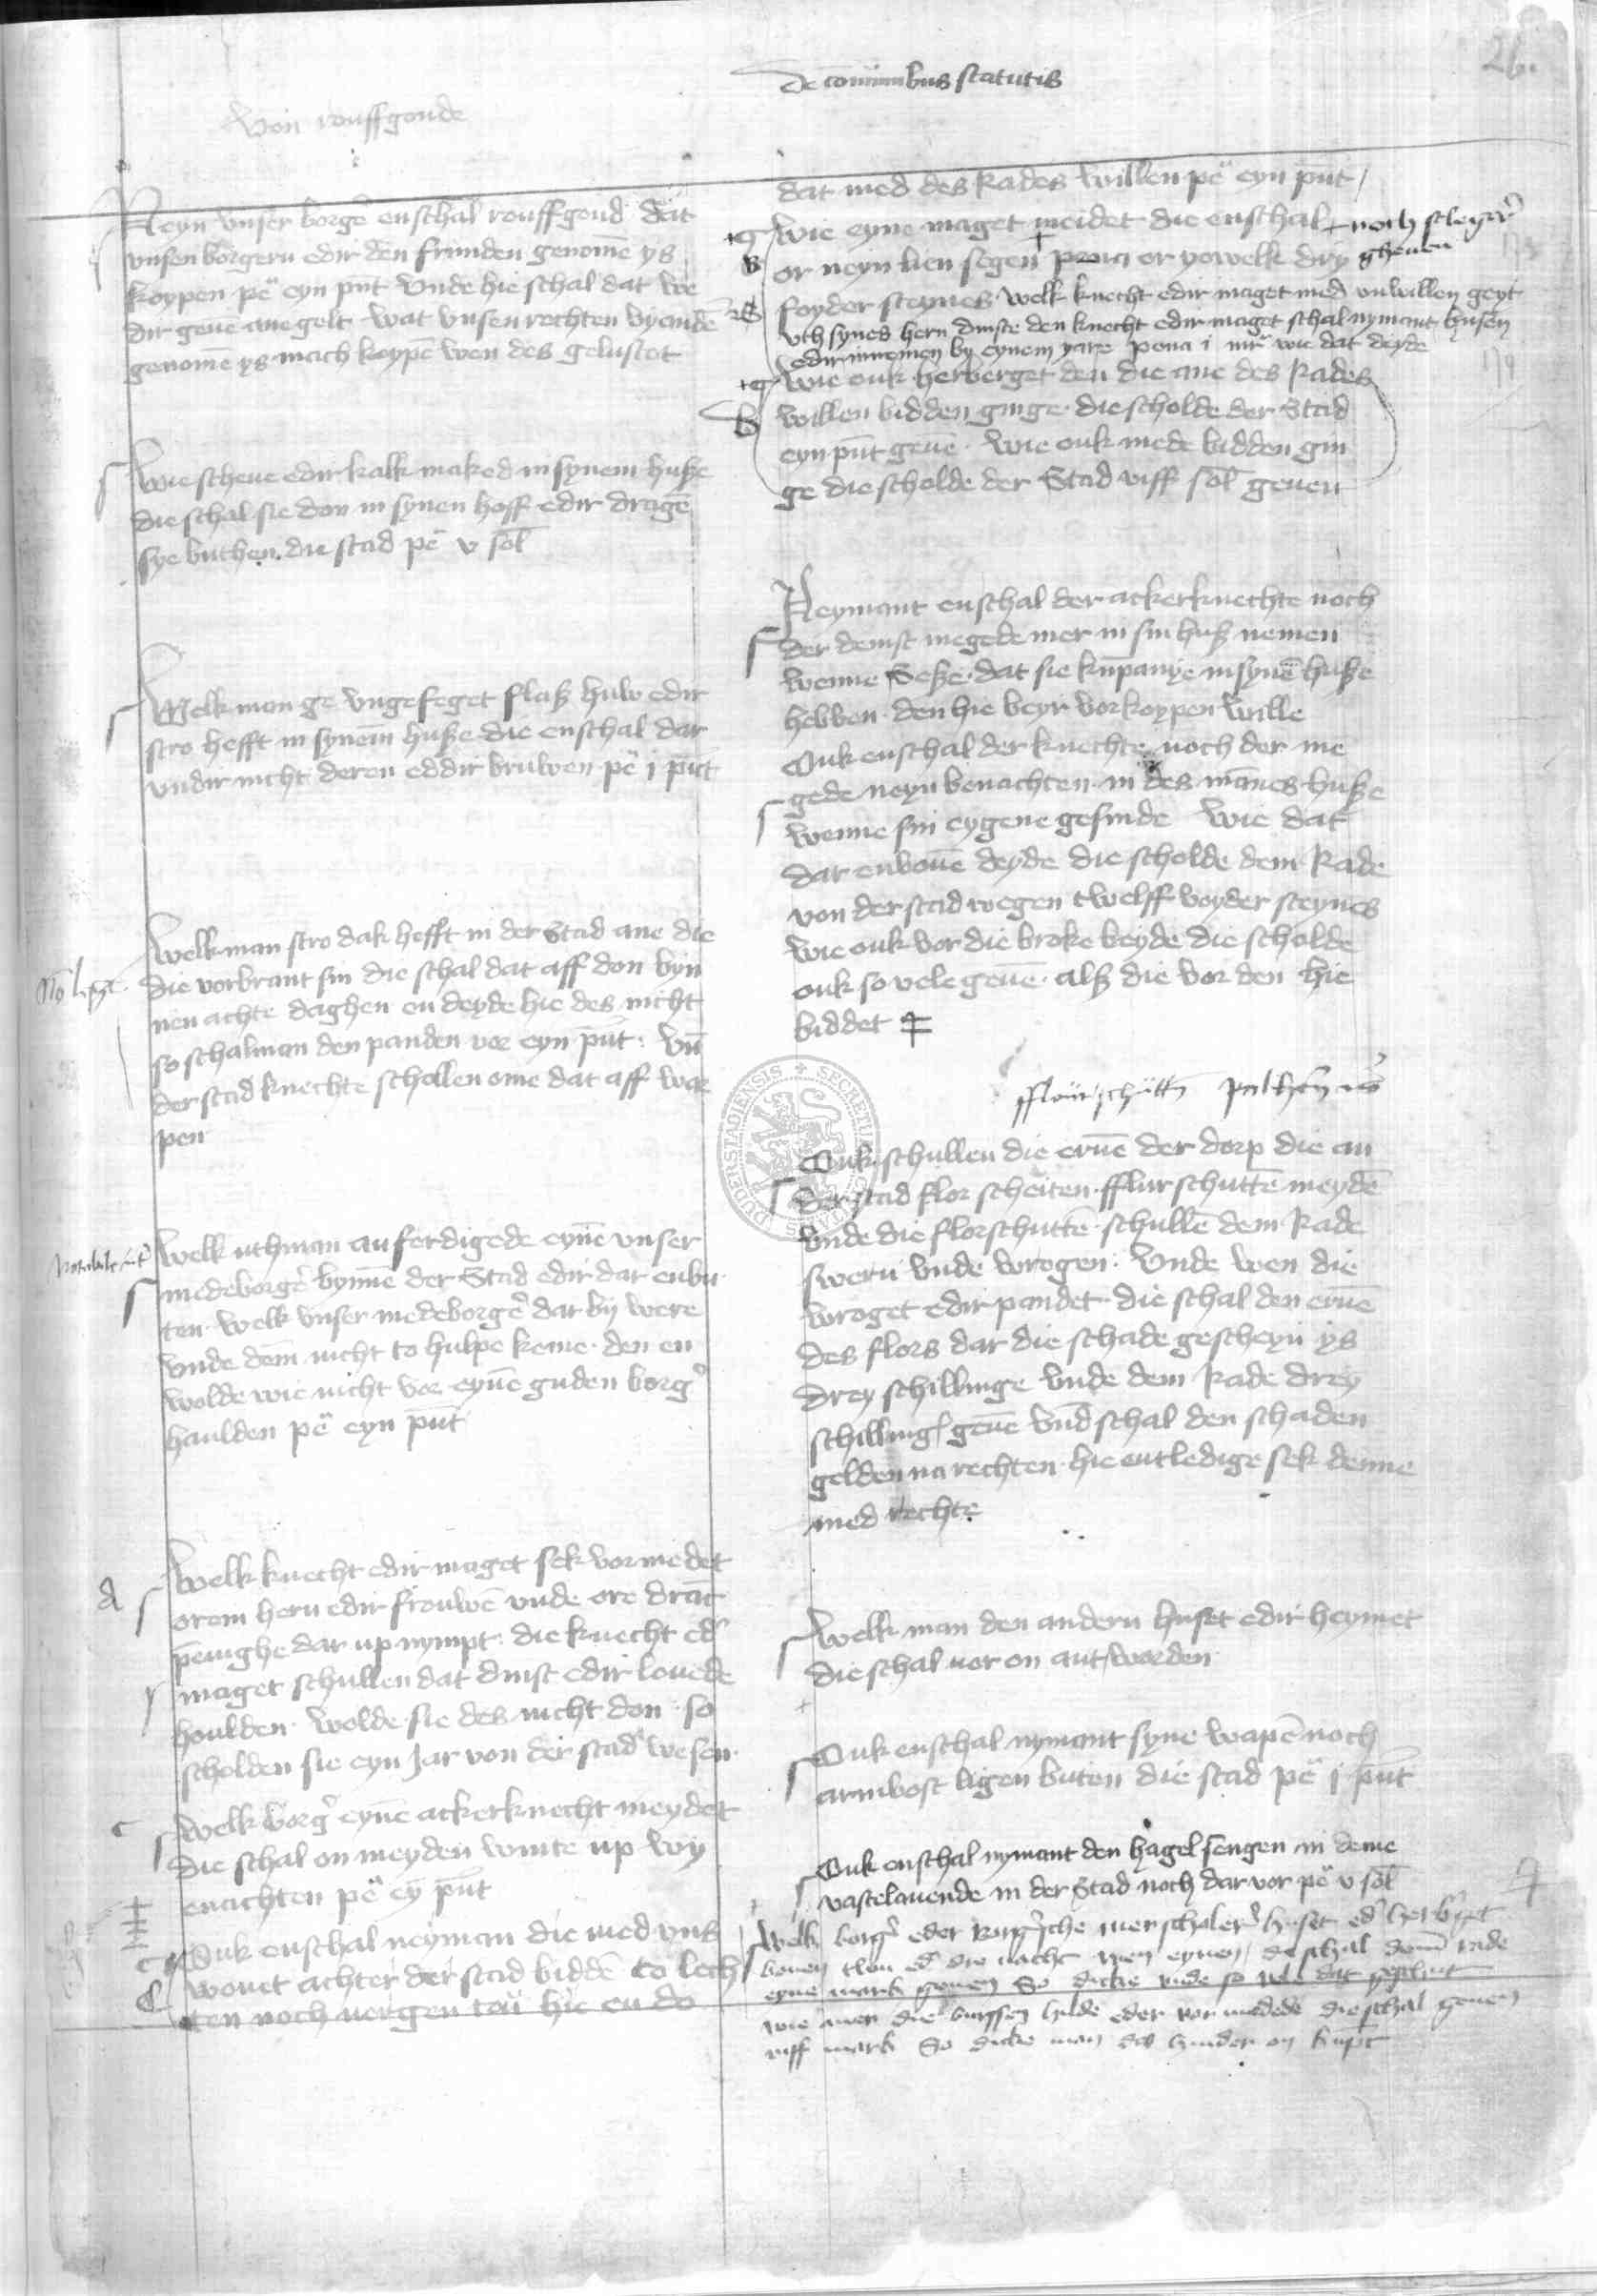 26.
De comunibus statutis
Von rouffgoude
Neyn vnser borgẽ enschal rouffgoud dat
vnsen borgern edir den frunden genomẽ ys
koypen pẽ eyn pūt vnde hie schal dat we
dir geuẽ ane gelt wat vnsen rechten vyandẽ
genomẽ ys mach koypẽ wen des gelustet
Wie scheue edir kalk maked in synem husze
die schal sie don in synen hoff edir dragẽ
sye buthen die stad pẽ v sol
Welk man ge vngefeget flasz huw edir
stro hefft in synem husze die enschal dar
vndir nicht deren eddir bruwen pẽ j pūt
Welk man stro dak hefft in der Stad ane die
die vorbrant sin die schal dat aff don byn
nen achte daghen en deyde hie des nicht
so schalman den panden vor eyn pūt vñ
der stad knechte schollen ome dat aff wor
pen
Welk uthman anferdigede eynẽ vnser
medeborgẽ bynnẽ der Stad edir dar enbu
ten welk vnser medeborgẽ dar by were
vnde dem nicht to hulpe keme den en
wolde wie nicht vor eynẽ guden borgẽ
haulden pẽ eyn pūt
A
Welk knecht edir maget sek vormedet
orem hern edir frouwẽ vnde ore drāc
pēnighe dar up nympt die knecht edẽ
maget schullen dat dinst edir louede
houlden wolde sie des nicht don so
scholden sie eyn jar von der stad wesen
c
Welk borgẽ eynẽ ackerknecht meydet
die schal on meyden wente up wy
enachten pẽ eȳ pūt
Ouk enschal neyman die med vns
wonet achter der stad biddẽ to lech
ten noch nergen tou hie en do
dat med des Rades willen pẽ eyn pūt
Wie eyne maget meidet die enschal + noch sleger
or neyn lien segen pena or yowelk dry gheuen
foyder steynes welk knecht edir maget med vnwillen geyt
vth synes hern dinste den knecht edir maget schal nymant husen
edir innemen by eynem yare pena i mr̃ wie dat deyde
Wie ouk herberget den die ane des Rades
B
willen bidden ginge die scholde der Stad
eyn pūt geuẽ wie ouk mede bidden gin
ge die scholde der Stad viff sol geuen
Neymant enschal der ackerknechte noch
der deinst megede mer in sin husz nemen
wenne Sesze dat sie kūpanye in synẽ husze
hebben den hie beyr vorkoypen wille
Ouk enschal der knechte noch der me
gede neyn benachten in des mānes husze
wenne sin eygene gesinde wie dat
dar enbouẽ deyde die scholde dem Rade
von der stad wegen twelff voyder steynes
wie ouk vor die broke beyde die scholde
ouk so vele geuẽ alsz die vor den hie
biddet
SECRETU CIVITATIS DUDERSTADIENSIS
Ouk schullen die eruẽ der dorp die an
der stad flor scheiten fflurschuttẽ meydẽ
vnde die florschuttẽ schullẽ dem Rade
swern vnde wrogen vnde wen die
wroget edir pandet die schal den eruẽ
des flors dar die schade gescheyn ys
drey schillinge vnde dem Rade drey
schilling geuẽ vnd schal den schaden
gelden na rechten hie entledige sek denne
med rechte
Welk man den andern huset edir heymet
die schal uor on antworden
Ouk enschal nymant syne wapẽ noch
armbost ligen buten die stad pẽ j pūt
Ouk enschal nymant den hagel sengen in deme
vastelauende in der Stad noch dar vor pẽ v sol
Welk borgẽ eder
eyne mark geuen So dicke vnde so
viff mark So dicke man